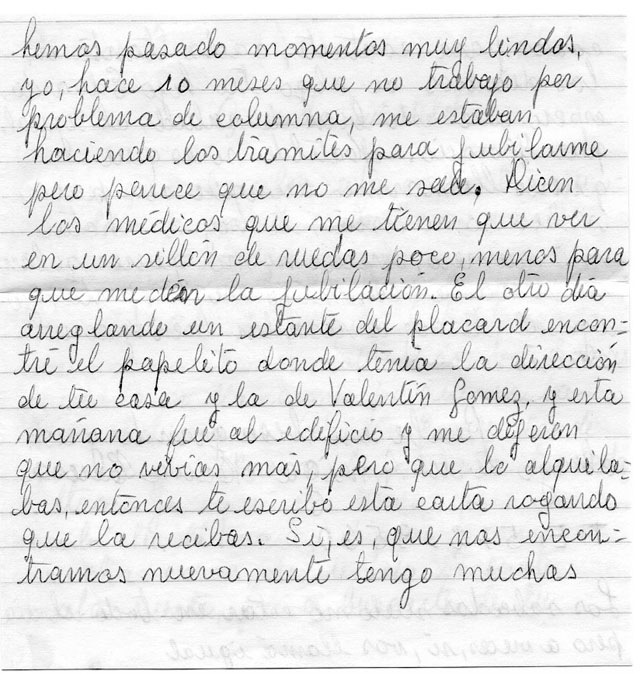 hemos pasado momentos muy lindos,
yo, hace 10 meses que no trabajo por
problema de columna, me estaban
haciendo los tramites para jubilarme
pero parece que no me sale. Dicen
los médicos que me tienen que ver
en un sillón de ruedas poco, menos para
que me dén la jubilación. El otro día
arreglando un estante del placard encon=
tré el papelito donde tenia la dirección
de tu casa y la de Valentín Gomez, y esta
mañana fui al edificio y me digeron
que no vivias más, pero que lo alquila=
bas, entonces te escribo esta carta rogando
que la recibas. Si, es, que nos encon=
tramos nuevamente tengo muchas